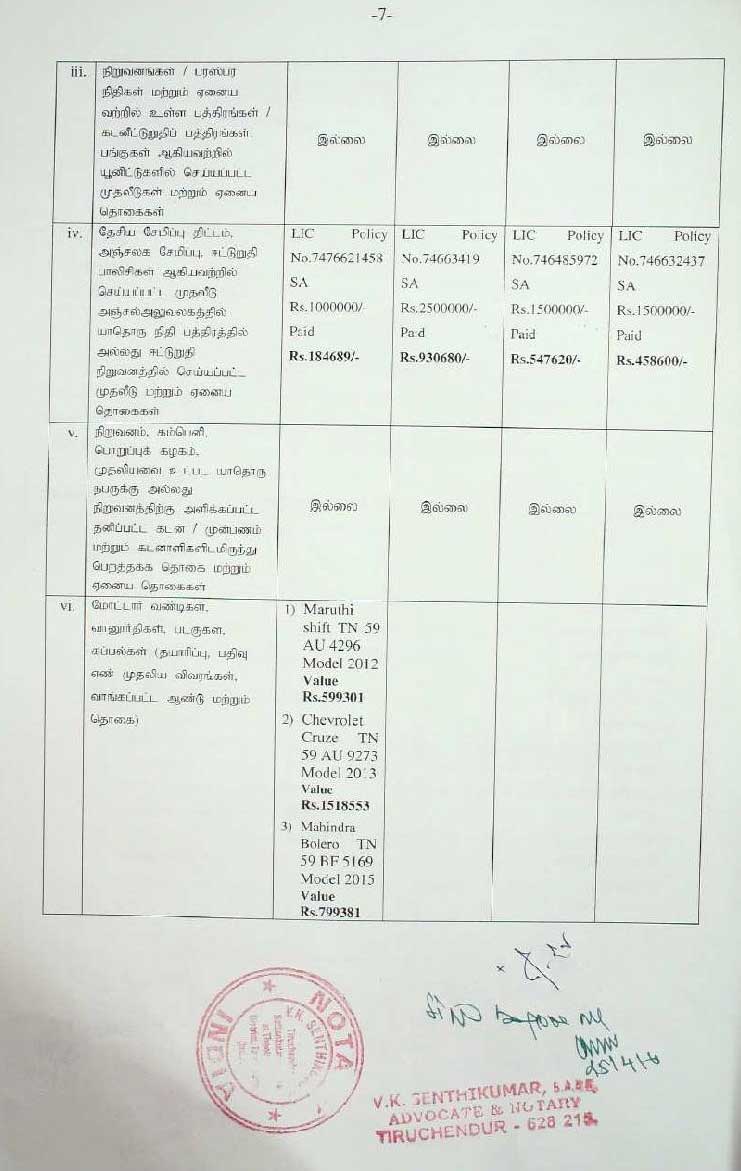 -7-
iii. நிறுவனங்கள் / பரஸ்பர
நிதிகள் மற்றும் ஏனைய
வற்றில் உள்ள பத்திரங்கள் /
கடனீட்டுறுதிப் பத்திரங்கள்.
பங்குகள் ஆகியவற்றில்
யூனிட்டுகளில் செய்யப்பட்ட
முதலீடுகள் மற்றும் ஏனைய
தொகைகள்
இல்லை இல்லை இல்லை இல்லை
iv. தேசிய சேமிப்பு திட்டம்,
அஞ்சலக சேமிப்பு, ஈட்டுறுதி
பாலிசிகள் ஆகியவற்றில்
செய்யப்பட்ட முதலீடு
அஞ்சல்அலுவலகத்தில்
யாதொரு நிதி பத்திரத்தில்
அல்லது ஈட்டுறுதி
நிறுவனத்தில் செய்யப்பட்ட
முதலீடு மற்றும் ஏனைய
தொகைகள்
LIC Policy
No.7476621458
SA
Rs.1000000/-
Paid
Rs.184689/-
LIC Policy
No.74663419
SA
Rs.2500000/-
Paid
Rs.930680/-
LIC Policy
No.746485972
SA
Rs.1500000/-
Paid
Rs.547620/-
LIC Policy
No.746632437
SA
Rs.1500000/-
Paid
Rs.458600/-
v. நிறுவனம், கம்பெனி,
பொறுப்புக் கழகம்,
முதலியவை உட்பட யாதொரு
நபருக்கு அல்லது
நிறுவனத்திற்கு அளிக்கப்பட்ட
தனிப்பட்ட கடன் / முன்பணம்
மற்றும் கடனாளிகளிடமிருந்து
பெறத்தக்க தொகை மற்றும்
ஏனைய தொகைகள்
இல்லை இல்லை இல்லை இல்லை
vi. மோட்டார் வண்டிகள்,
வானூர்திகள், படகுகள்,
கப்பல்கள் (தயாரிப்பு, பதிவு
எண் முதலிய விவரங்கள்,
வாங்கப்பட்ட ஆண்டு மற்றும்
தொகை)
1) Maruthi
shift TN 59
AU 4296
Model 2012
Value
Rs.599301
2) Chevrolet
Cruze TN
59 AU 9273
Model 2013
Value
Rs.1518553
3) Mahindra
Bolero TN
59 BF 5169
Model 2015
Value
Rs.799381
NOTA
INDIA
V.K. SENTHIKU
25/4/16
V.K. SENTHIKUMAR, B.A.B.L.
ADVOCATE & NOTARY
TIRUCHENDUR - 628 215.